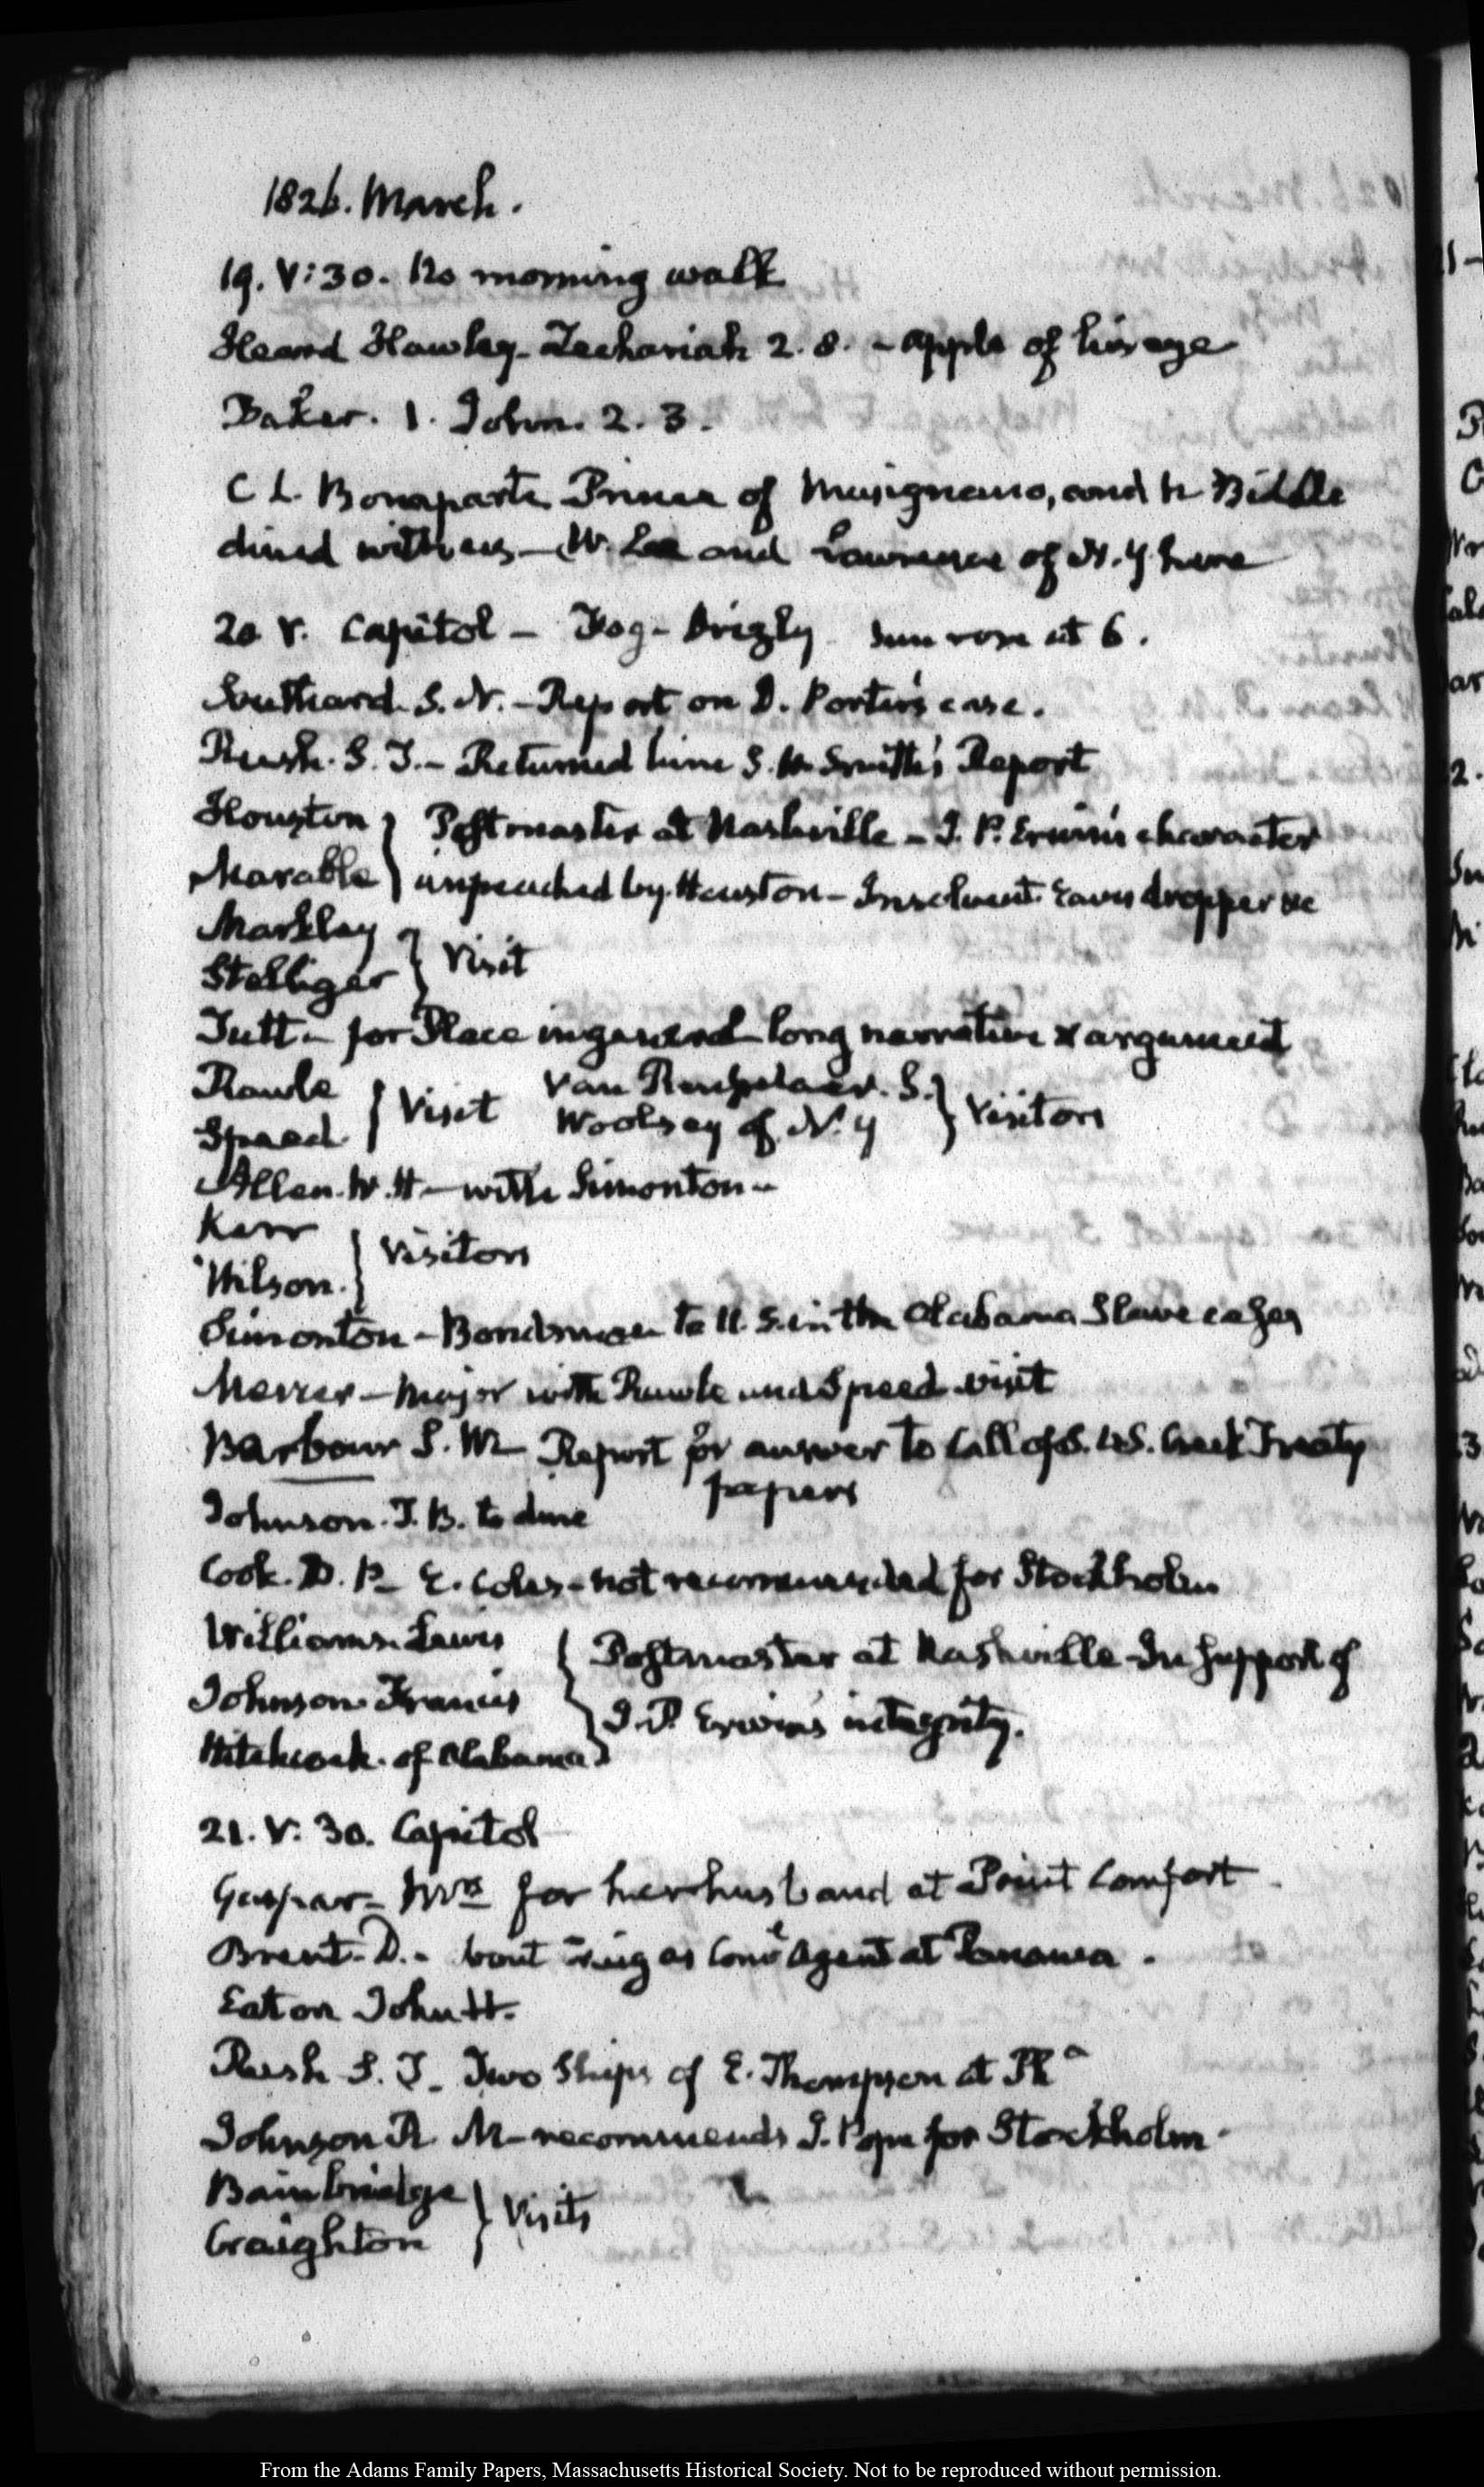 1826. March.
19. V:30. No morning walk
Heard Hawley. Zechariah 2. 8. - apple of his eye
Baker. 1. John. 2. 3.
C L. Bonaparte Prince of Musignano, and N Biddle
dined with us — W. Lee and Lawrence of N. Y here
20 V. Capitol — Fog — Drizly Sun rose at 6.
Southard. S. N. — Report on D. Porter's case.
Rush. S. T. — Returned him S. H. Smith's Report
Houston } Postmaster at Nashville — J. P. Erwin's character
Marable } impeached by Houston — Insolvent Eaves dropper &c
Markley
Stelliger } Visit
Tutt — for Place in general — long narrative & argument
Rawle Van Rensselaer. S.
Speed. } Visit Woolsey of N. Y } Visitors
Allen. W. H — with Simonton —
Kerr
Wilson. } Visitors
Simonton — Bondsman to U. S. in the Alabama Slave cases
Mercer — Major with Rawle and Speed visit
Barbour S. W. Report for answer to Call of S. U.S. Creek Treaty
papers
Johnson. J. B. to dine
Cook. D. P — E. Coles — not recommended for Stockholm
Williams. Lewis { Postmaster at Nashville — In support of
Johnson. Francis } J. P. Erwin's integrity.
Hitchcock. of Alabama
21. V: 30. Capitol
Gaspar — Mrs for her husband at Point Comfort
Brent. D. — as Agent at Panama.
Eaton John H.
Rush S. T. Two Ships of E. Thompson at Pha
Johnson R. M — recommends J. Pope for Stockholm.
Bainbridge
Creighton } Visits
From the Adams Family Papers, Massachusetts Historical Society. Not to be reproduced without permission.